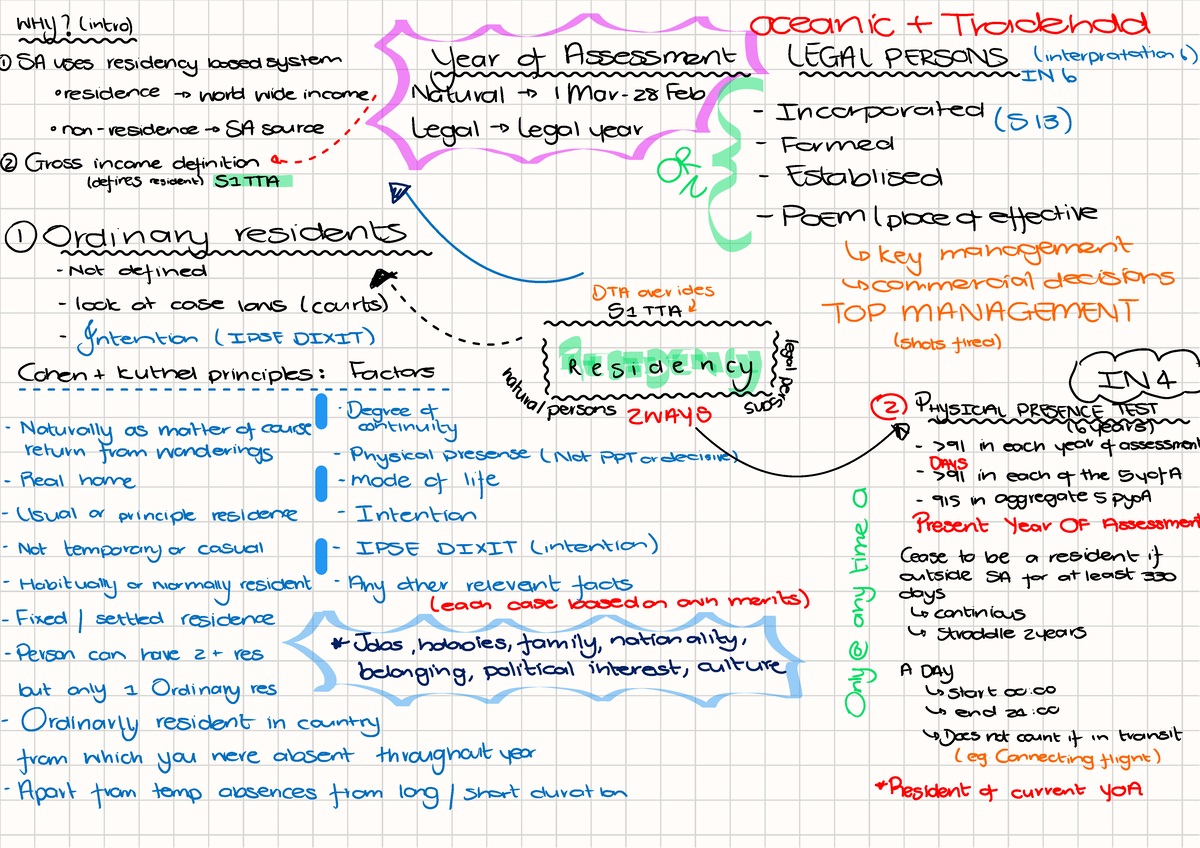 WHY? (intro)
① SA uses residency based system
• residence → world wide income
• non-residence → SA source
② Gross income definition
(defines resident) S1 TTA
Year of Assessment
Natural → 1 Mar - 28 Feb
Legal → legal year
oceanic + Tradehold
LEGAL PERSONS (interpratation 6)
IN 6
- Incorporated (S13)
- Formed
- Establised
- POEM (place of effective
↳ key management
↳ commercial decisions
TOP MANAGEMENT
(shots fired)
① Ordinary residents
- Not defined
- look at case laws (courts)
- Intention (IPSE DIXIT)
DTA overides
S1 TTA
Residency
natural persons
legal persons
2 WAYS
Cohen + Kuthel principles:
- Naturally as matter of course
return from wanderings
- Real home
- Usual or principle residence
- Not temporary or casual
- Habitually or normally resident
- Fixed / settled residence
- Person can have 2+ res
but only 1 Ordinary res
- Ordinarly resident in country
from which you were absent throughout year
- Apart from temp absences from long / short duration
Factors
- Degree of
continuity
- Physical presense (Not PPT or decisive)
- mode of life
- Intention
- IPSE DIXIT (intention)
- Any other relevant facts
(each case based on own merits)
* Jobs, hobbies, family, nationality,
belonging, political interest, culture
IN 4
② PHYSICAL PRESENCE TEST
(6 years)
- >91 in each year of assessment
DAYS
- >91 in each of the 5 yofA
- 915 in aggregate 5 pyoA
Present Year OF Assessment
Cease to be a resident if
outside SA for at least 330
days
↳ continious
↳ straddle 2 years
A DAY
↳ start 00:00
↳ end 24:00
↳ Does not count if in transit
(eg Connecting flight)
* Resident of current YOA
Only @ any time a